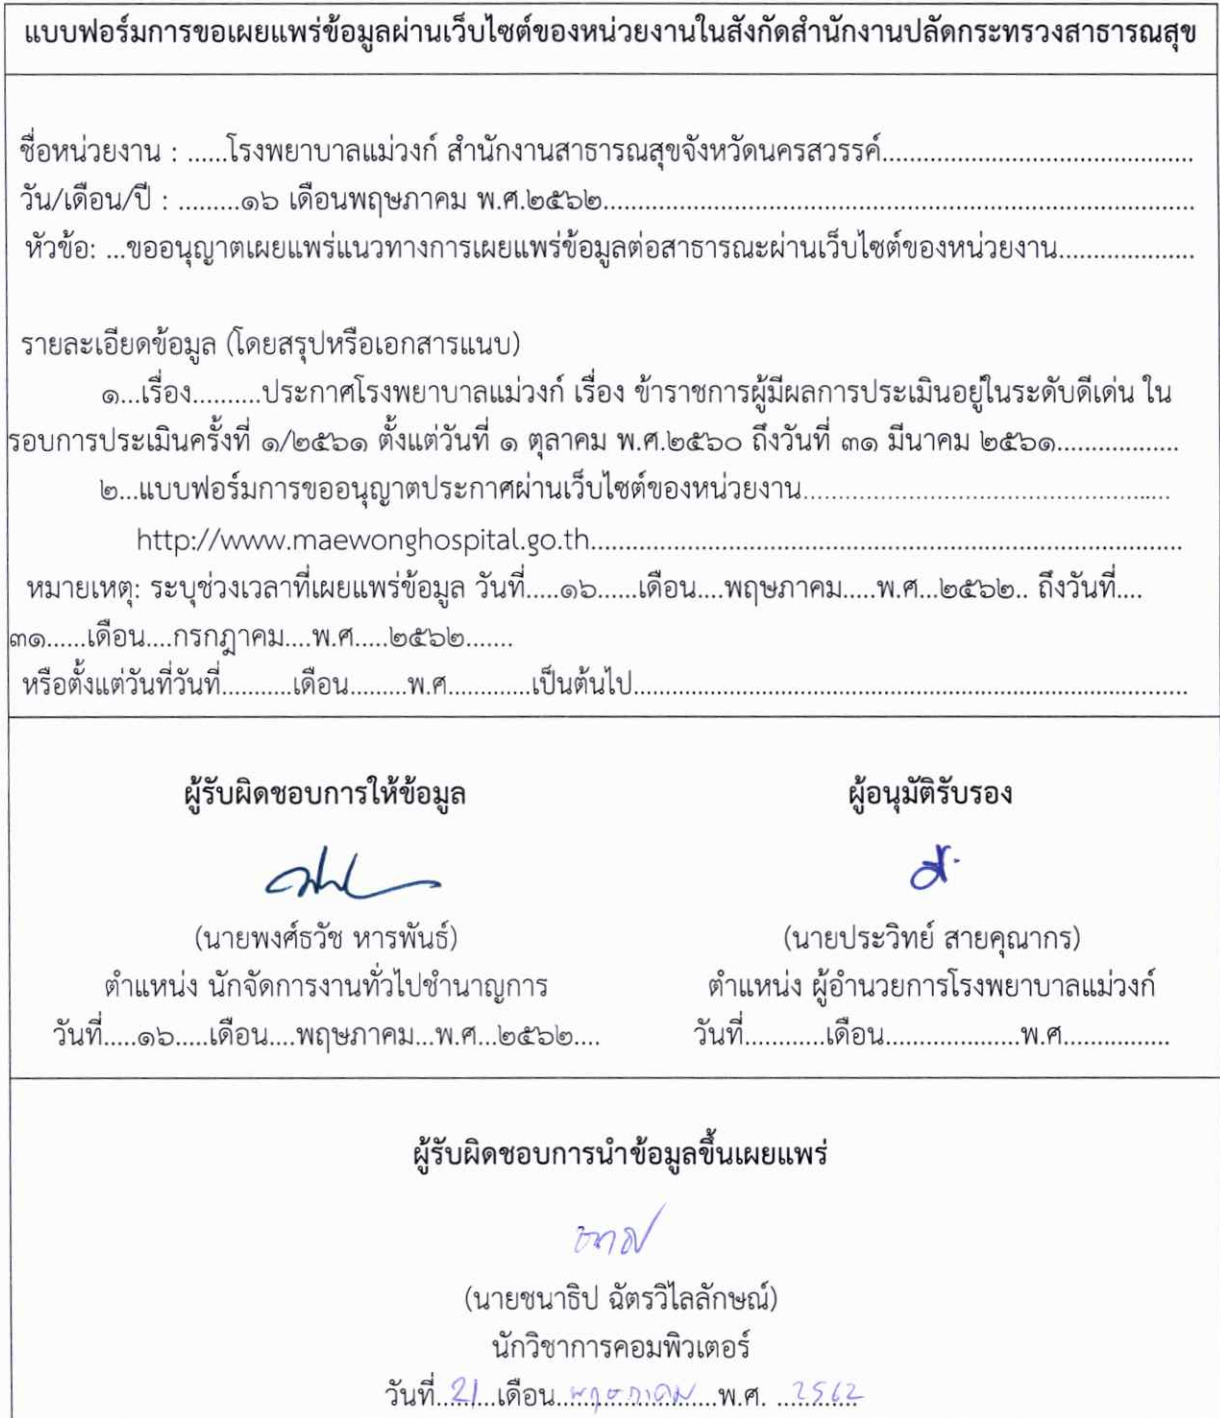 แบบฟอร์มการขอเผยแพร่ข้อมูลผ่านเว็บไซต์ของหน่วยงานในสังกัดสำนักงานปลัดกระทรวงสาธารณสุข
ชื่อหน่วยงาน : ......โรงพยาบาลแม่วงก์ สำนักงานสาธารณสุขจังหวัดนครสวรรค์.............................................
วัน/เดือน/ปี : .........๑๖ เดือนพฤษภาคม พ.ศ.๒๕๖๒......................................................................................
หัวข้อ: ...ขออนุญาตเผยแพร่แนวทางการเผยแพร่ข้อมูลต่อสาธารณะผ่านเว็บไซต์ของหน่วยงาน....................
รายละเอียดข้อมูล (โดยสรุปหรือเอกสารแนบ)
๑...เรื่อง..........ประกาศโรงพยาบาลแม่วงก์ เรื่อง ข้าราชการผู้มีผลการประเมินอยู่ในระดับดีเด่น ใน
รอบการประเมินครั้งที่ ๑/๒๕๖๑ ตั้งแต่วันที่ ๑ ตุลาคม พ.ศ.๒๕๖๐ ถึงวันที่ ๓๑ มีนาคม ๒๕๖๑..................
๒...แบบฟอร์มการขออนุญาตประกาศผ่านเว็บไซต์ของหน่วยงาน......................................................
http://www.maewonghospital.go.th......................................................................................
หมายเหตุ: ระบุช่วงเวลาที่เผยแพร่ข้อมูล วันที่.....๑๖......เดือน....พฤษภาคม.....พ.ศ...๒๕๖๒.. ถึงวันที่....
๓๑......เดือน....กรกฎาคม....พ.ศ.....๒๕๖๒.......
หรือตั้งแต่วันที่วันที่...........เดือน.........พ.ศ.............เป็นต้นไป.................................................................................
ผู้รับผิดชอบการให้ข้อมูล
(นายพงศ์ธวัช หารพันธ์)
ตำแหน่ง นักจัดการงานทั่วไปชำนาญการ
วันที่.....๑๖.....เดือน....พฤษภาคม...พ.ศ...๒๕๖๒....
ผู้อนุมัติรับรอง
(นายประวิทย์ สายคุณากร)
ตำแหน่ง ผู้อำนวยการโรงพยาบาลแม่วงก์
วันที่............เดือน....................พ.ศ................
ผู้รับผิดชอบการนำข้อมูลขึ้นเผยแพร่
(นายชนาธิป ฉัตรวิไลลักษณ์)
นักวิชาการคอมพิวเตอร์
วันที่..21...เดือน...พฤษภาคม...พ.ศ. ..2562